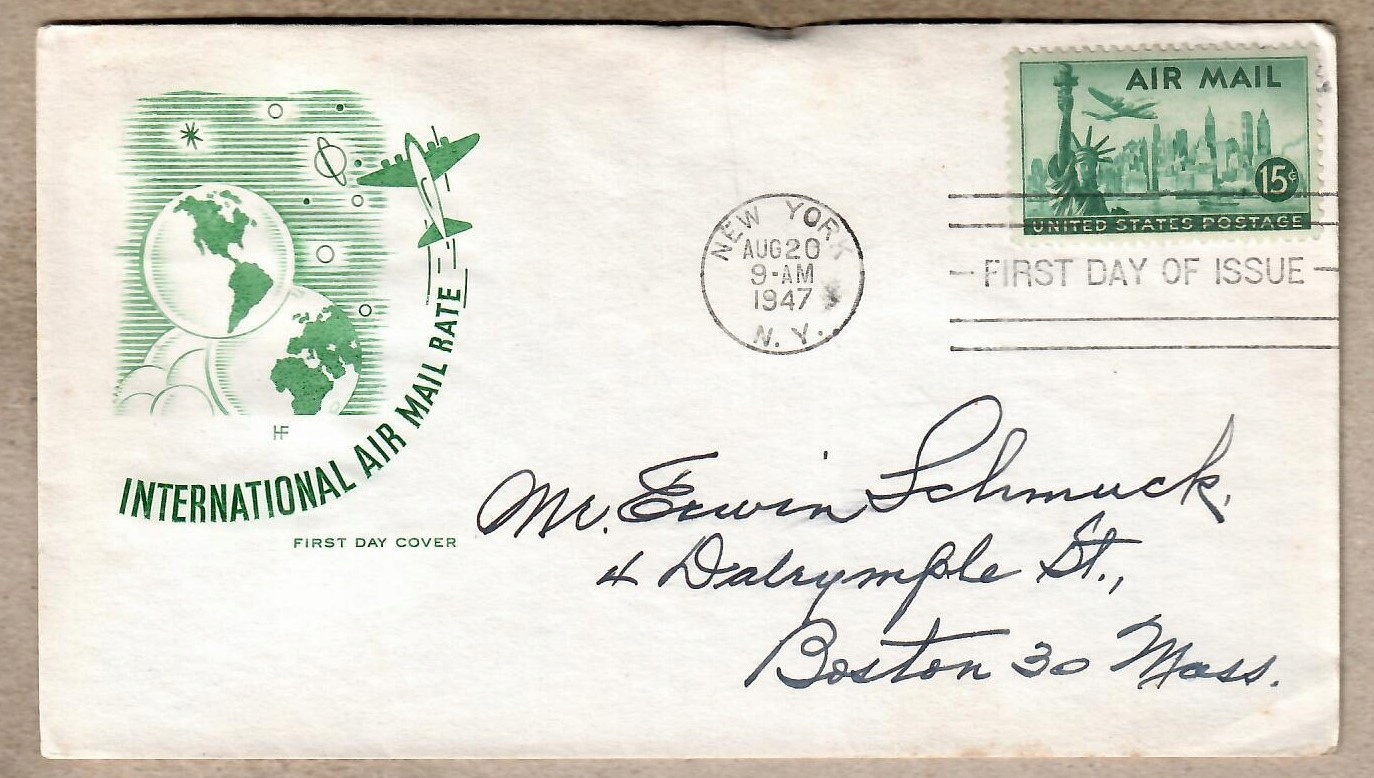 AIR MAIL
15¢
UNITED STATES POSTAGE
NEW YORK
AUG 20
9-AM
1947
N. Y.
FIRST DAY OF ISSUE
HF
INTERNATIONAL AIR MAIL RATE
FIRST DAY COVER
Mr. Erwin Schmuck,
4 Dalrymple St.,
Boston 30 Mass.